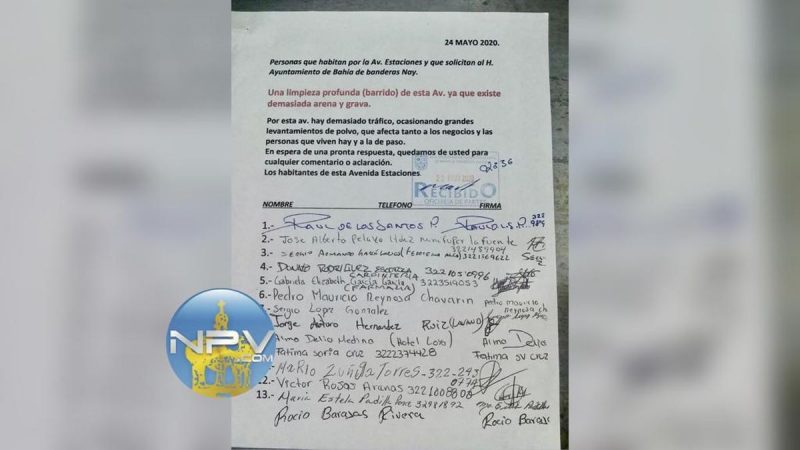 24 MAYO 2020.
Personas que habitan por la Av. Estaciones y que solicitan al H.
Ayuntamiento de Bahía de banderas Nay.
Una limpieza profunda (barrido) de esta Av. ya que existe
demasiada arena y grava.
Por esta av. hay demasiado tráfico, ocasionando grandes
levantamientos de polvo, que afecta tanto a los negocios y las
personas que viven hay y a la de paso.
En espera de una pronta respuesta, quedamos de usted para
cualquier comentario o aclaración.
Los habitantes de esta Avenida Estaciones
RECIBIDO
NOMBRE TELEFONO FIRMA
1.- RAUL DE LOS SANTOS P.
2.- Jose Alberto Pelayo Hdez la fuente
3.- SERGIO ARMANDO 3221459904
4.- RODRIGUEZ 322 105 0996
CARPINTERIA
5.- Gabriela Elizabeth García (FARMACIA) 3223519053
6.- Pedro Mauricio Reynosa Chavarin
Sergio Lopez Gonzalez
Jorge Arturo Hernandez Ruiz
Almo Delio Medina (Hotel Loro) Almo Delio
Fatima soria cruz 3222374428 Fatima SV CRUZ
MARIO ZUÑIGA TORRES-322-293
0774
12.- Victor Rosas Aranas 3221008800
13.- Maria Estela Padilla
Rocio Barajas Rivera Rocio Barajas
NPV
.COM